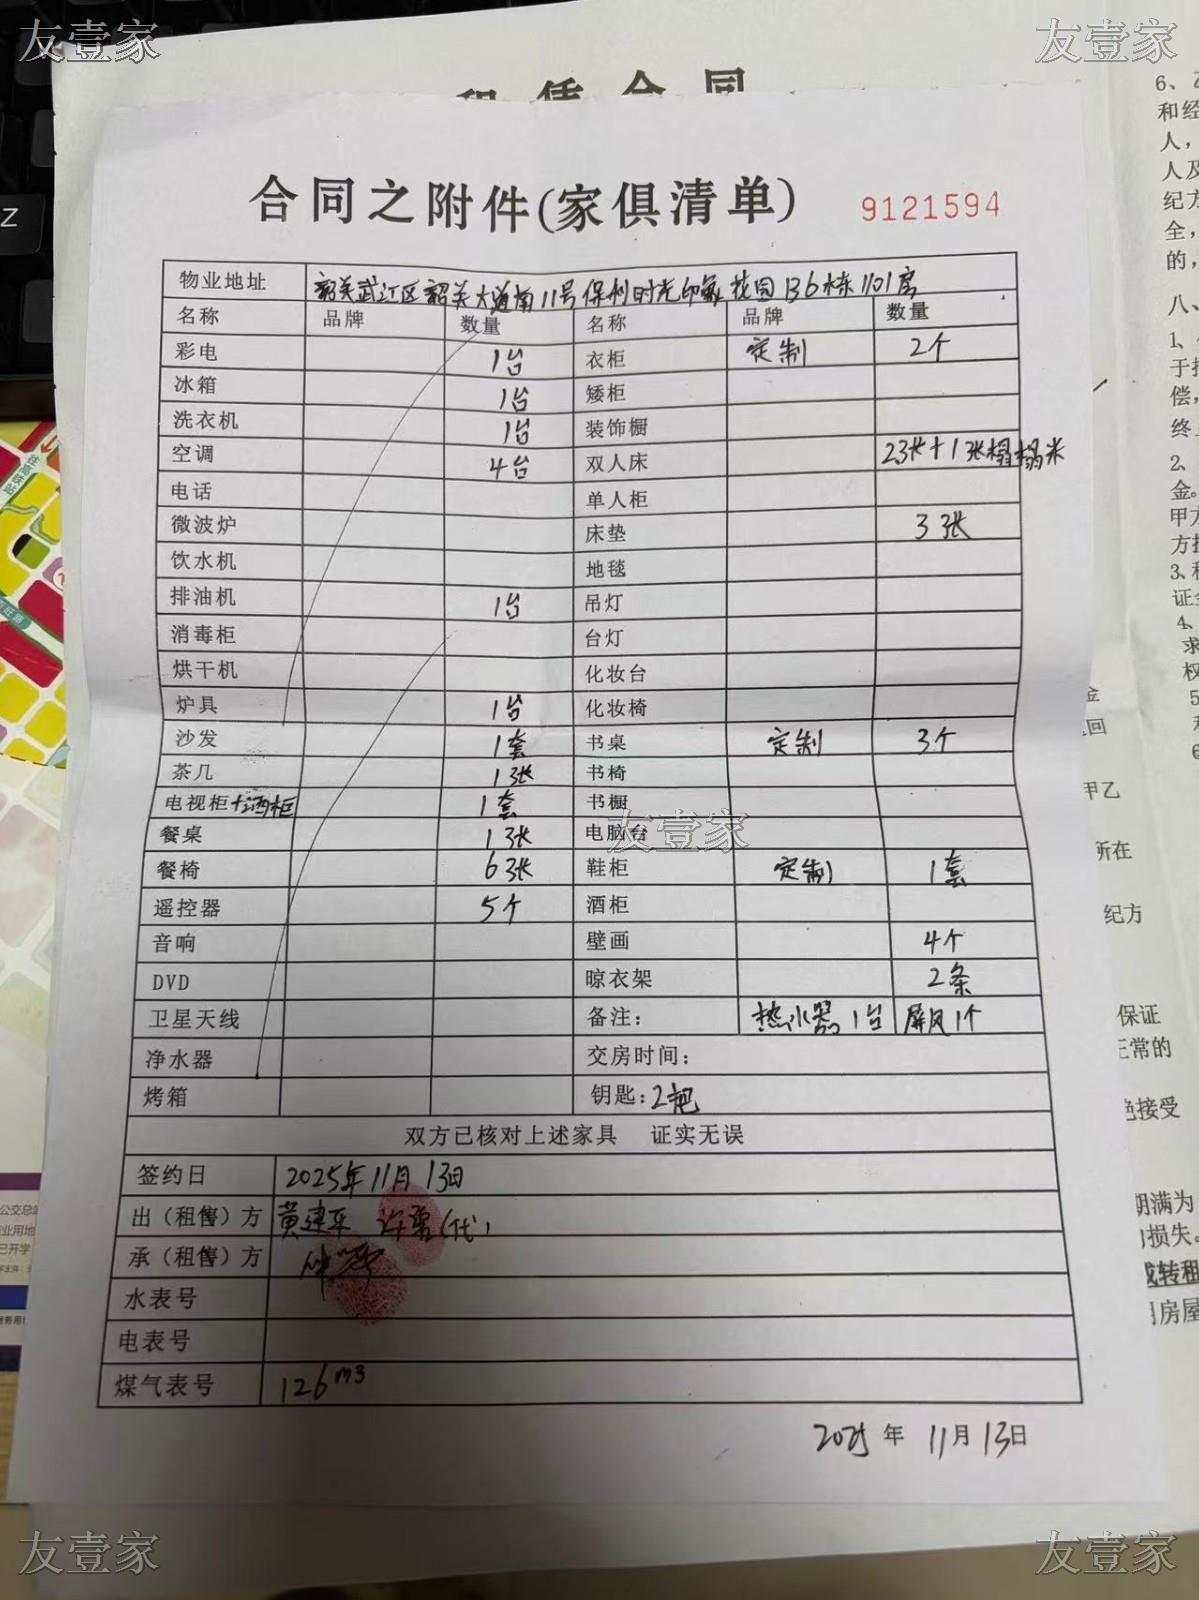 友壹家 友壹家
租赁合同
合同之附件(家俱清单) 9121594
物业地址 韶关武江区韶关大道南11号保利时光印象花园136栋1101房
名称 品牌 数量 名称 品牌 数量
彩电 1台 衣柜 定制 2个
冰箱 1台 矮柜
洗衣机 1台 装饰橱
空调 4台 双人床 23张+1张榻榻米
电话 单人柜
微波炉 床垫 3张
饮水机 地毯
排油机 1台 吊灯
消毒柜 台灯
烘干机 化妆台
炉具 1台 化妆椅
沙发 1套 书桌 定制 3个
茶几 1张 书椅
电视柜+酒柜 1套 书橱
餐桌 1张 电脑台
友壹家
餐椅 6张 鞋柜 定制 1套
遥控器 5个 酒柜
音响 壁画 4个
DVD 晾衣架 2条
卫星天线 备注: 热水器1台 屏风1个
净水器 交房时间:
烤箱 钥匙:2把
双方已核对上述家具 证实无误
签约日 2025年11月13日
出(租售)方 黄建平 (代)
承(租售)方
水表号
电表号
煤气表号 126m3
2025年11月13日
6、
和经
人,
人及
纪方
全,
的,
八、
1、
于
偿,
终
2、
金。
甲方
方
3、
证
4、
求
权
5
6
金
回
甲乙
所在
纪方
保证
正常的
绝接受
期满为
损失。
或转租
房屋
Z
往高铁站
友壹家 友壹家